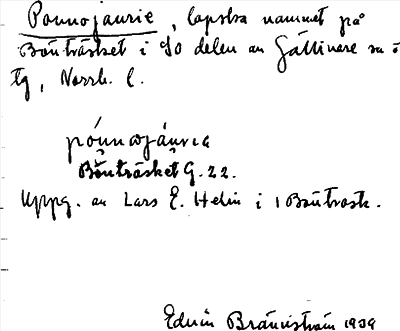 Pounojaurie, lapska namnet på
Bönträsket i SO delen av Gällivare sn o
tg, Norrb. l.
póunωjáuria
Bönträsket G. 22.
Uppg. av Lars E. Helin i Böntrask.
Edvin Brännström 1939